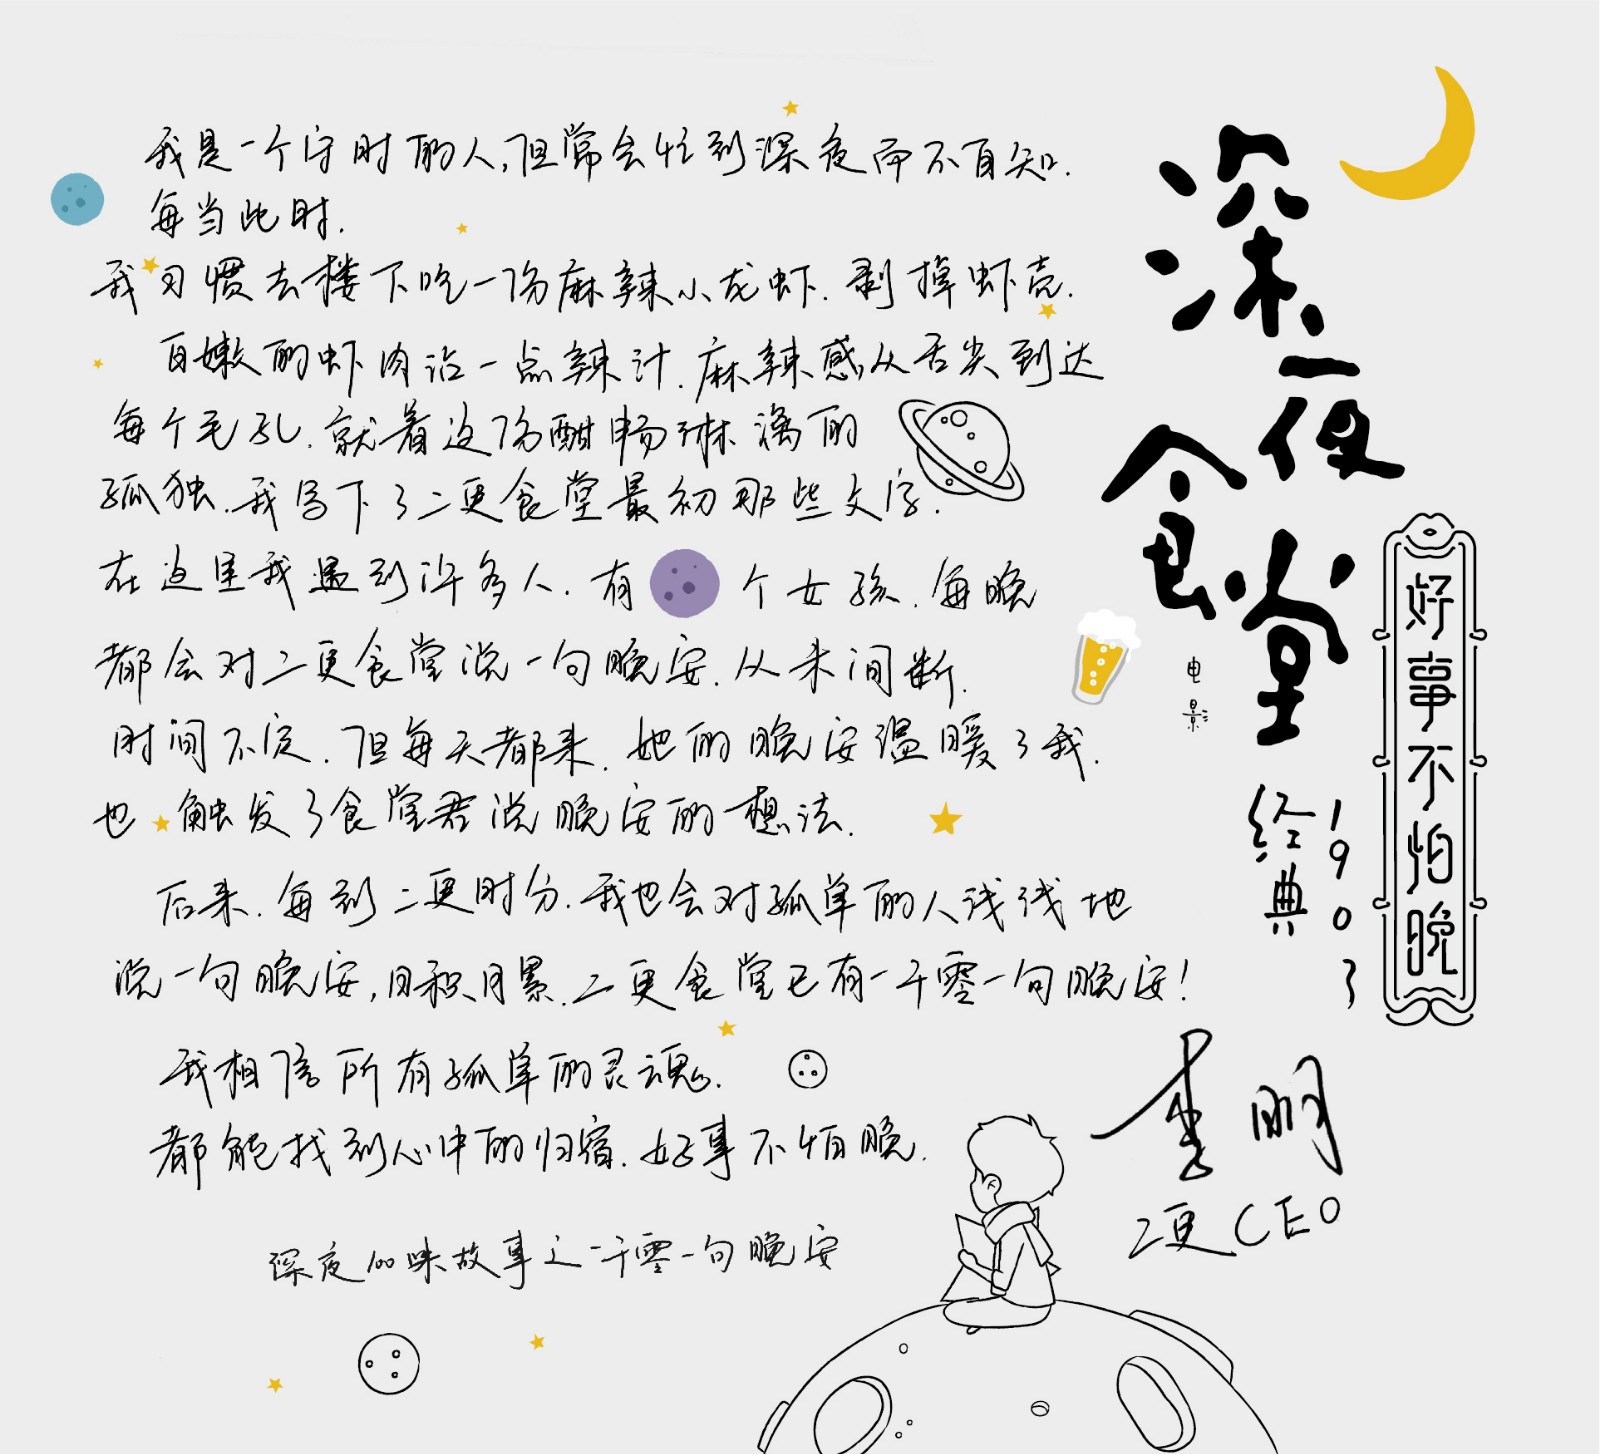 我是一个守时的人,但常会忙到深夜而不自知.
每当此时.
我习惯去楼下吃一份麻辣小龙虾.剥掉虾壳.
白嫩的虾肉沾一点辣汁.麻辣感从舌尖到达
每个毛孔.就着这份酣畅淋漓的
孤独.我写下了二更食堂最初那些文字.
在这里我遇到许多人.有个女孩.每晚
都会对二更食堂说一句晚安.从未间断.
时间不定.但每天都来.她的晚安温暖了我.
也触发了食堂君说晚安的想法.
后来.每到二更时分.我也会对孤单的人浅浅地
说一句晚安,日积月累.二更食堂已有一千零一句晚安!
我相信所有孤单的灵魂.
都能找到心中的归宿.好事不怕晚.
深夜100味故事之一千零一句晚安
深夜食堂
电影
经典1903
好事不怕晚
李明
二更CEO